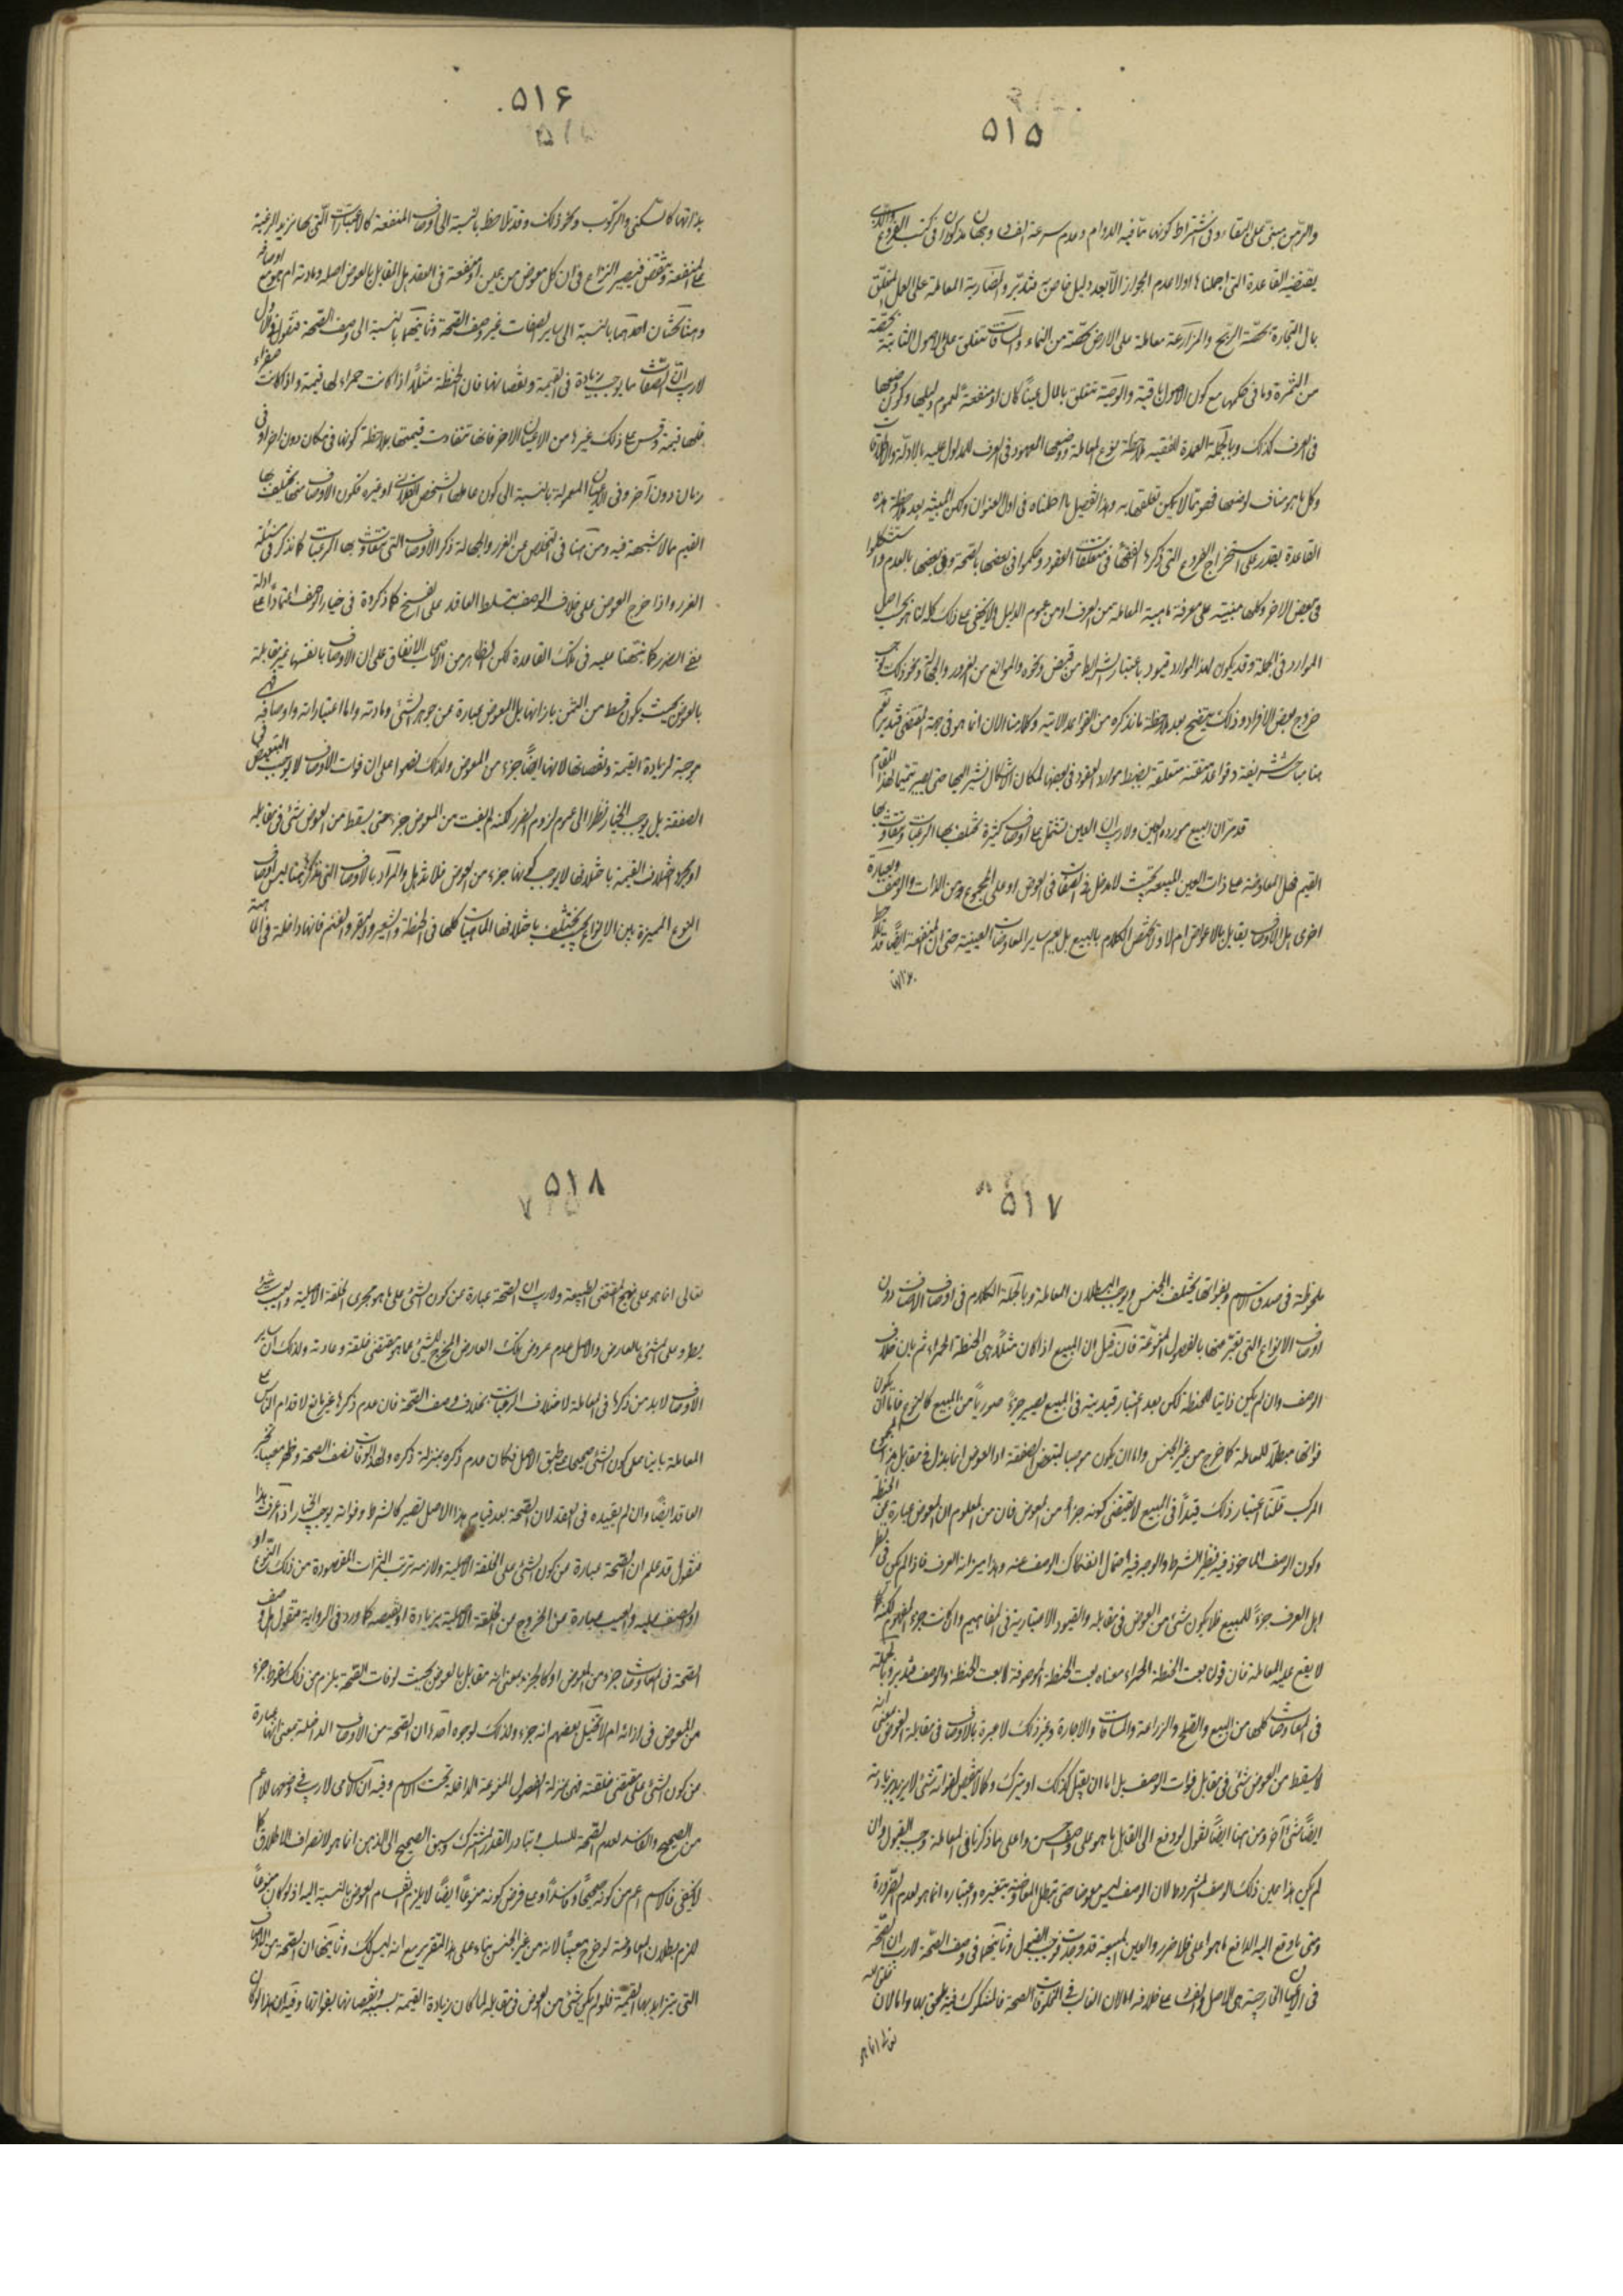 ۵۱۵
والرهن مبنى على البقاء وفى اشتراط كونها مما فيه الدوام وعدم سرعة الفساد وجهان مذكوران فى كتب الفروع والذى
يقتضيه القاعدة التى اجملناها اولا عدم الجواز الا بعد دليل خاص به فتدبر والمضاربة المعاملة على العمل المتعلق
بمال التجارة بحصة الربح والمزارعة معاملة على الارض بحصة من النماء والمساقات تتعلق على الاصول الثابتة بحصة
من الثمرة وما فى حكمها مع كون الاصول باقية والوصية تتعلق بالمال عينا كان او منفعة لعموم دليلها وكون وضعها
فى العرف كذلك وبالجملة العمدة للفقيه ملاحظة نوع المعاملة ووضعها المعهود فى العرف المدلول عليه بالادلة والاطلاقات
وكل ما هو مناف لوضعها فهو مما لا يمكن تعلقها به وهذا التفصيل ما اجملناه فى اول العنوان ولكن المتنبه بعد ملاحظة هذه
القاعدة يقدر على استخراج الفروع التى ذكرها الفقهاء فى متعلقات العقود وحكموا فى بعضها بالصحة وفى بعضها بالعدم واستشكلوا
فى بعض الاخر وكلها مبنية على معرفة ماهية المعاملة من العرف او من عموم الدليل ولا يخفى ان ذلك كله انما هو بحسب اصل
الموارد فى الجملة وقد يكون لهذا الموارد قيود باعتبار الشرايط من قبض ونحوه والموانع من الغرر والجهالة ونحو ذلك يوجب
خروج بعض الافراد وذلك يتضح بعد ملاحظة ما نذكره من القواعد الاتية وكلامنا الان انما هو فى جهة المقتضى فتدبر نعم
هنا مباحث شريفة وقواعد متقنة متعلقة بضبط موارد العقود فى بعضها لمكان الاشكال نشير اليها حتى يصير تتميما لهذا المقام
قد مر ان البيع مورده العين ولا ريب ان العين تشتمل على اوصاف كثيرة تختلف بها الرغبات ويتفاوت بها
القيم فهل المعاوضة على ذات العين المبيعة بحيث لا مدخل لهذه الصفات فى العوض او على المجموع من الذات والوصف وبعبارة
اخرى هل الاوصاف يقابل بالاعواض ام لا ولا يختص الكلام بالبيع بل يعم ساير المعاوضات العينية حتى ان المنفعة ايضا قد تلاحظ
بذاتها
۵۱۶
بذاتها كالسكنى والركوب ونحو ذلك وقد تلاحظ بالنسبة الى اوصاف المنفعة كالاعتبارات التى بها تزيد الرغبة
على المنفعة وتنقص فيصير النزاع فى ان كل معوض من عين او منفعة فى العقد هل المقابل بالعوض اصله ومادته ام مجموع اوصافه
وهنا بحثان احدهما بالنسبة الى ساير الصفات غير وصف الصحة وثانيهما بالنسبة الى وصف الصحة فنقول فى الاول
لا ريب ان الصفات مما يوجب زيادة فى القيمة ونقصانها فان الحنطة مثلا اذا كانت حمراء لها قيمة واذا كانت صفراء
فلها قيمة وقس على ذلك غيرها من الاعيان الاخر فانها تتفاوت قيمتها بملاحظة كونها فى مكان دون اخر او فى
زمان دون آخر وفى الاعيان المعمولة بالنسبة الى كون عاملها الشخص الفلانى او غيره فكون الاوصاف منها تختلف بها
القيم مما لا شبهة فيه ومن هنا فى التخلص عن الغرر والجهالة ذكر الاوصاف التى تتفاوت بها الرغبات كما نذكر فى مسئلة
الغرر واذا خرج العوض على خلاف الوصف يتسلط العاقد على الفسخ كما ذكروه فى خيار الوصف اعتمادا على ادلة
نفى الضرر كما نبهنا عليه فى تلك القاعدة لكن الظاهر من الاصحاب الاتفاق على ان الاوصاف بانفسها غير مقابلة
بالعوض بحيث يكون قسط من الثمن بازائها بل المعوض عبارة عن جوهر الشئ ومادته واما اعتباراته واوصافه فهى
موجبة لزيادة القيمة ونقصانها لا انها ايضا جزء من المعوض ولذلك نصوا على ان فوات الاوصاف لا يوجب التبعيض فى
الصفقة بل يوجب الخيار نظرا الى عموم لزوم الضرر لكنه لم يفت من المعوض جزء حتى يسقط من العوض شئ فى مقابله
او مجرد اختلاف القيمة باختلافها لا يوجب كونها جزء من العوض فلا تذهل والمراد بالاوصاف التى نذكرها هنا ليس اوصاف
النوع المميزة بين الانواع بحيث يختلف باختلافها الماهيات كلها فى الحنطة والشعير والبقر والغنم فانها داخلة فى الماهية
۵۱۷
ملحوظة فى صدق الاسم وبفواتها يختلف الجنس ويوجب البطلان المعاملة وبالجملة الكلام فى اوصاف الاصناف دون
اوصاف الانواع التى يعبر عنها بالفصول المنوعة فان قيل ان المبيع اذا كان مثلا هى الحنطة الحمراء ثم بان خلاف
الوصف وان لم يكن ذاتيا للحنطة لكن بعد اعتبار قيديته فى المبيع يصير جزء صوريا من المبيع كالنوع فاما ان يكون
فواتها مبطلا للمعاملة كما خرج من غير الجنس واما ان يكون موجبا لتبعض الصفقة اذ العوض انما بذل فى مقابل هذا المجموع
المركب قلنا اعتبار ذلك قيدا فى المبيع لا يقتضى كونه جزء من المعوض فان من المعلوم ان المعوض عبارة عن الحنطة
وكون الوصف الماخوذ فيه نظير الشرط والوجه فيه احتمال انفكاك الوصف عنه وهذا ميزانه العرف فاذا لم يكن فى نظر
اهل العرف جزء للمبيع فلا يكون شئ من العوض فى مقابله والقيود الاعتبارية فى المفاهيم وان كانت جزء المفهوم لكنه مما
لا يقع عليه المعاملة فان قولنا بعت الحنطة الحمراء معناه بعت الحنطة الموصوفة لا بعت الحنطة والوصف فتدبر وبالجملة
فى المعاوضات كلها من البيع والصلح والزراعة والمساقات والاجارة وغير ذلك لا عبرة بالاوصاف فى مقابلة العوض بمعنى انه
لا يسقط من العوض شئ فى مقابل فوات الوصف بل اما ان يقبل كذلك او يترك وكما لا ينقص لفواته شئ لا يزيد بزيادته
ايضا شئ آخر ومن هنا ايضا نقول لو دفع الى القابل ما هو على وصف احسن واعلى مما ذكرنا فى المعاملة وجب القبول وان
لم يكن هذا عين ذلك الوصف المشروط لان الوصف ليس معوضا حتى تبطل المعاوضة بتغيره واعتباره انما هو لعدم الضرورة
ومتى ما دفع اليه الدافع ما هو اعلى فلا ضرر والعين المبيعة قد وجدت فوجب القبول وثانيهما فى وصف الصحة لا ريب ان الصحة
فى الاعيان الخارجية هى الاصل والفساد على خلافه اما لان الغالب فى المتمولات الصحة فالمشكوك فيه يلحق بها واما لان خلق الله
تعالى انما هو
۵۱۸
تعالى انما هو على نهج المقتضى الطبيعة ولا ريب ان الصحة عبارة عن كون الشئ على ما هو مجرى الخلقة الاصلية والعيب شئ
يطرء على الشئ بالعارض والاصل عدم عروض ذلك العارض المخرج للشئ عما هو مقتضى خلقته وعادته ولذلك ان ساير
الاوصاف لا بد من ذكرها فى المعاملة لاختلاف الرغبات بخلاف وصف الصحة فان عدم ذكرها غير مانع لاقدام الناس على
المعاملة بانيا على كون الشئ صحيحا على طبق الاصل فكان عدم ذكره بمنزلة ذكره ولهذا لو فات وصف الصحة وظهر معيبا تخير
العاقد ايضا وان لم يقيده فى العقد لان الصحة بعد قيام هذا الاصل تصير كالشرط وفواته يوجب الخيار اذا عرفت هذا
فنقول قد علم ان الصحة عبارة عن كون الشئ على الخلقة الاصلية ولازمه ترتب الثمرات المقصودة من ذلك النوع او
او الصنف عليه والعيب عبارة عن الخروج عن الخلقة الاصلية بزيادة او نقيصة كما ورد فى الرواية فنقول هل وصف
الصحة فى المعاوضات جزء من المعوض او كالجزء بمعنى انه مقابل بالعوض بحيث لو فات الصحة يلزم من ذلك سقوط جزء
من العوض فى ازائه ام لا تخيل بعضهم انه جزء وذلك لوجوه احدها ان الصحة من الاوصاف الداخلة بمعنى انها عبارة
عن كون الشئ على مقتضى خلقته فهى بمنزلة الفصول المنوعة الداخلة تحت الاسم وفيه ان الاسامى لا ريب فى وضعها للاعم
من الصحيح والفاسد لعدم الصحة للسلب وتبادر القدر المشترك وسبق الصحيح الى الذهن انما هو لانصراف الاطلاق كما
لا يخفى فالاسم اعم من كونه صحيحا وفاسدا وعلى فرض كونه منوعا ايضا لا يلزم انقسام العوض بالنسبة اليه اذ لو كان منوعا
للزم بطلان المعاوضة لو خرج معيبا لانه من غير الجنس بناء على هذا التقرير مع انه ليس كذلك وثانيها ان الصحة من الاوصاف
التى يتزايد بها القيمة فلو لم يكن شئ من العوض فى مقابله لما كان زيادة القيمة بسببه ونقصانها بفواتها وفيه ان هذا لو كان